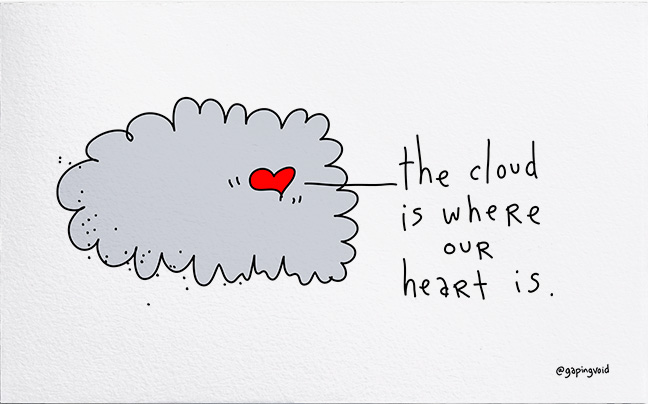 the cloud
is where
our
heart is.
@gapingvoid